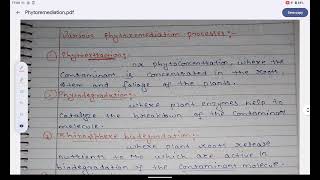 Phytoremediation.pdf
Save copy
Various Phytoremediation processes:-
① Phytoextraction:-
or phytoconcentration, where the
contaminant is concentrated in the roots,
stem and foliage of the plants.
② Phytodegradation:-
where plant enzymes help to
catalyze the breakdown of the contaminant
molecule.
③ Rhizosphere biodegradation:-
where plant roots release
nutrients to the which are active in
biodegradation of the contaminant molecule.